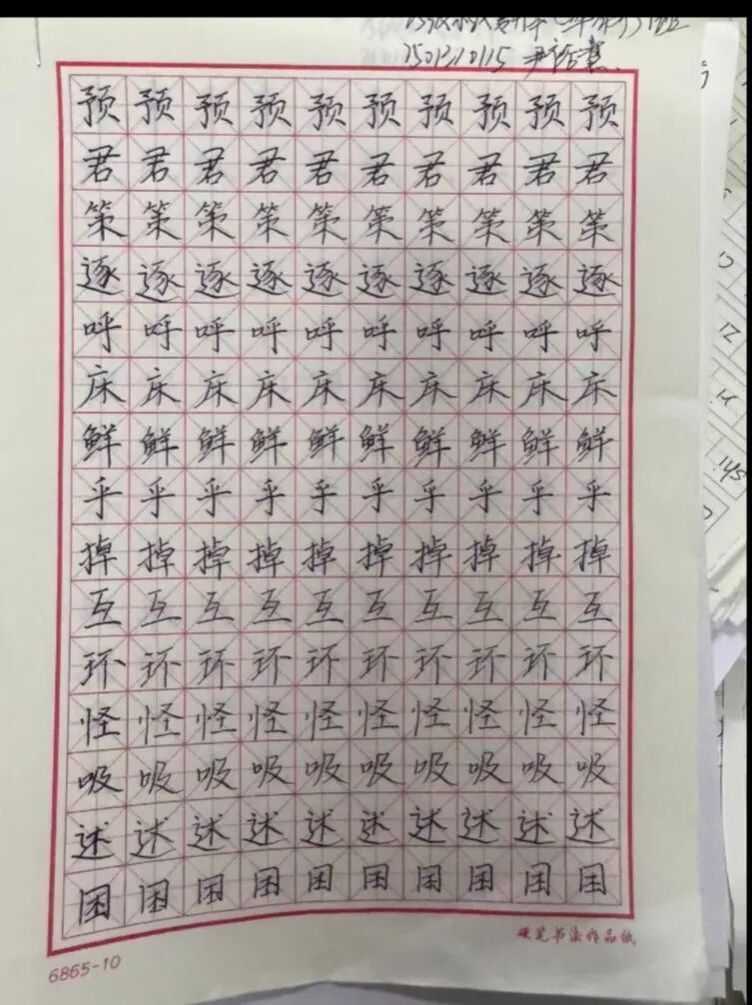 预预预预预预预预预预
君君君君君君君君君君
策策策策策策策策策策
逐逐逐逐逐逐逐逐逐逐
呼呼呼呼呼呼呼呼呼呼
床床床床床床床床床床
鲜鲜鲜鲜鲜鲜鲜鲜鲜鲜
乎乎乎乎乎乎乎乎乎乎
掉掉掉掉掉掉掉掉掉掉
互互互互互互互互互互
环环环环环环环环环环
怪怪怪怪怪怪怪怪怪怪
吸吸吸吸吸吸吸吸吸吸
述述述述述述述述述述
困困困困困困困困困困
硬笔书法作品纸
6865-10